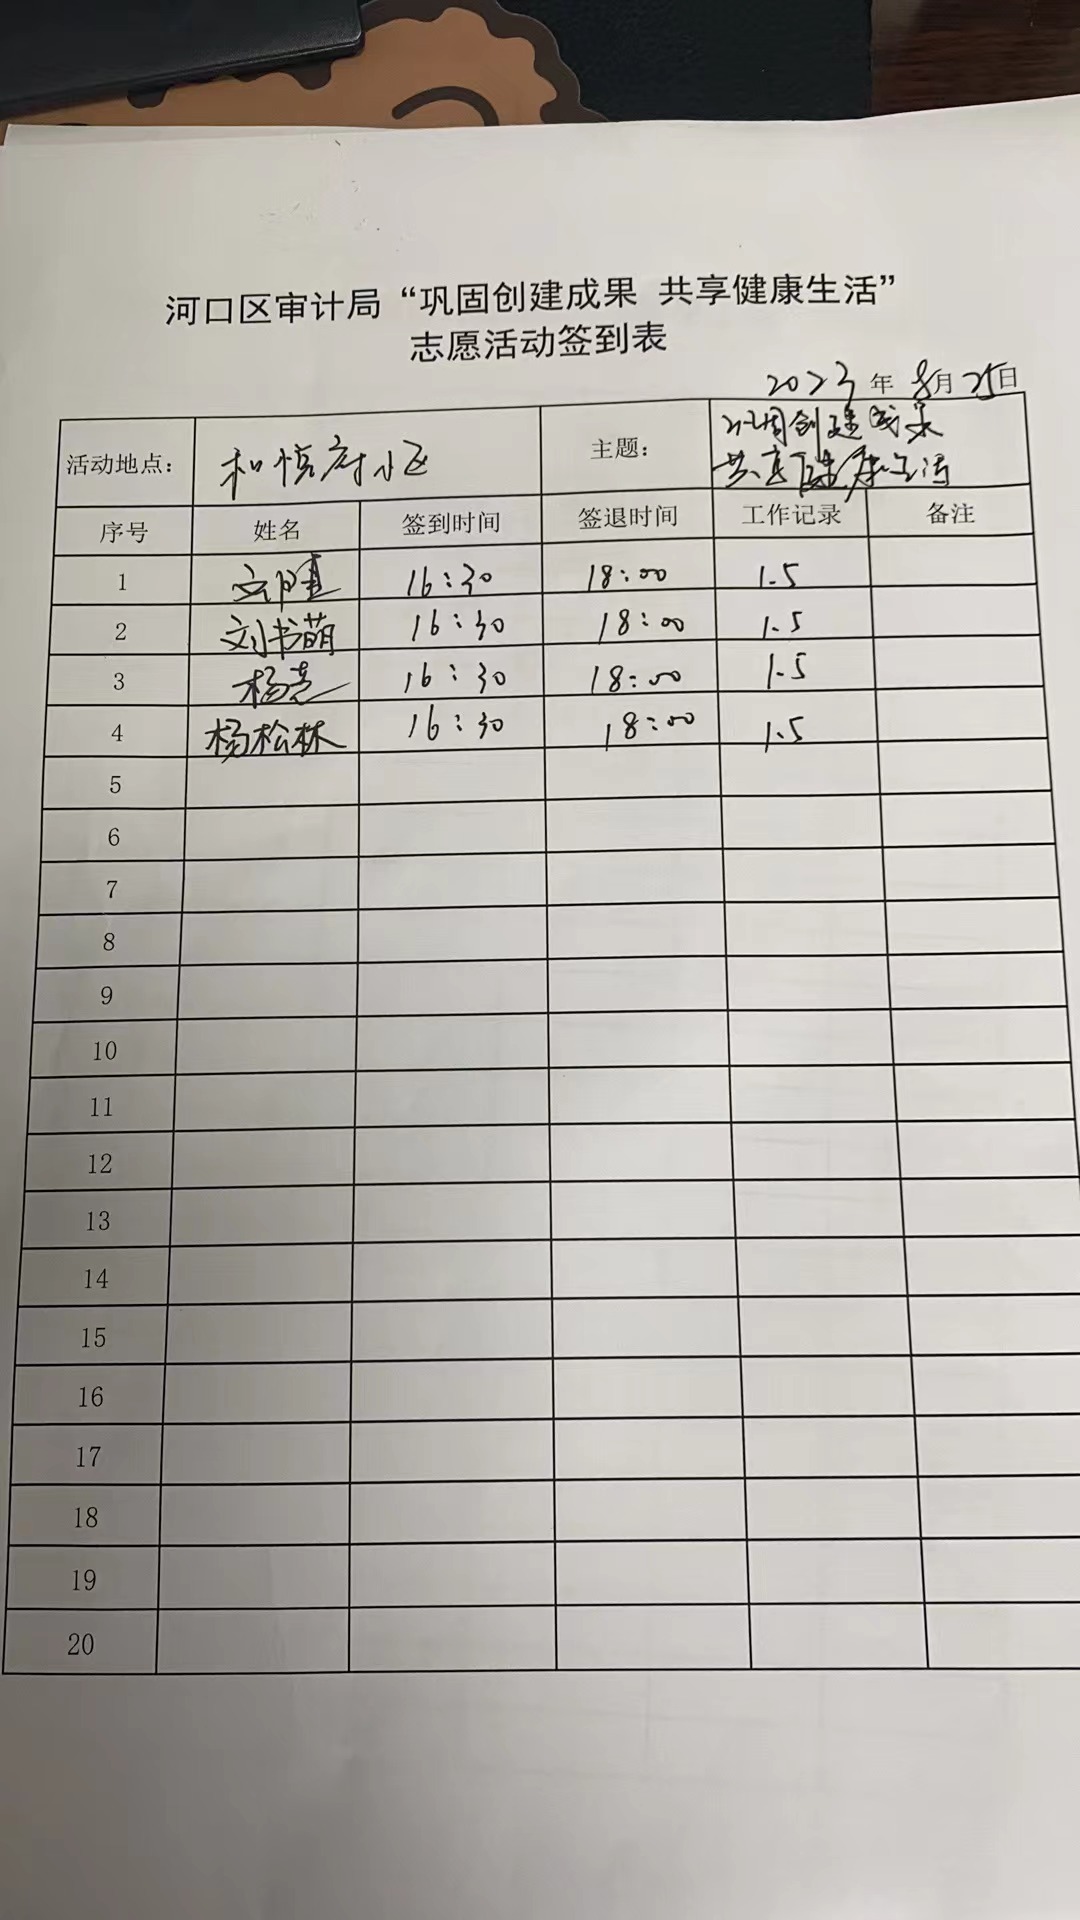 河口区审计局“巩固创建成果 共享健康生活”
志愿活动签到表
2023年8月25日
活动地点： 和悦府小区 主题： 巩固创建成果
共享健康生活
序号 姓名 签到时间 签退时间 工作记录 备注
1 16:30 18:00 1.5
2 刘书萌 16:30 18:00 1.5
3 杨 16:30 18:00 1.5
4 杨松林 16:30 18:00 1.5
5
6
7
8
9
10
11
12
13
14
15
16
17
18
19
20